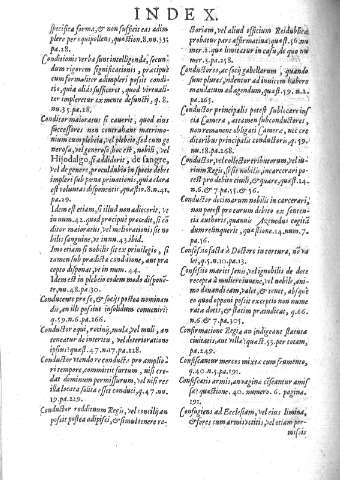 INDEX.
specifica forma, & non sufficeret adim
plere per equipollens, quæst. 8. nu. 31.
pa. 28.
Conditionis verba sunt intelligenda, secun
dum rigorem significationis, præcipuè
cum formaliter adimpleri possit condi-
tio, quia aliàs sufficeret, quod virtuali-
ter impleretur ex mente defuncti, q. 8.
nu. 35. pa. 28.
Conditor maioratus si cauerit, quod eius
successores non contrahant matrimo-
nium cum plebeia, vel plebeio sed cum ge
nerosa, vel generoso, siue est nobili, vel
Hijodalgo, si addiderit, de sangre,
vel de genere, præcludatio in specie debet
impleri sub pœna priuationis, quia clara
est voluntas disponentis, quæstio. 8. n. 41.
pa. 29.
Idem est etiam, si illud non adiecerit, vt
in num. 42. quod procedit procedit, si con
ditor maioratus, vel meliorationis sit no
bilis sanguine, vt num. 43. ibid.
Imò etiam si nobilis sit ex priuilegio, si
tamen sub prædicta conditione, aut præ-
cepto disponat, vt in num. 44.
Idem est in plebeio eodem modo disponē-
te, nu. 48. pa. 30.
Conducens pro se, & socijs postea nominan
dis, an illi possint insolidum conueniri:
q. 59. n. 6. pa. 166.
Conductor equi, rocinij, mulæ, vel muli, an
teneatur de interitu, vel deterioratione
ipsius: quæst. 47. nu. 7. pa. 118.
Conductor tenetur reconducere pro amplio
ri tempore, committit furtum, nisi cre-
dat dominum permissurum, vel nisi res
illa locata esset conduci, q. 47. nu.
19. pa. 229.
Conductor reddituum Regis, vel concilij an
possit postea adipisci, & simul tenere re-
ctoriam, vel aliud officium Reipublicæ
probatur pars affirmatiua, quæst. 56. nu-
mer. 2. quæ limitatur in casu, de quo nu
mer. 5. pa. 158.
Conductores, ac socij gabellarum, quando
sunt plures, videntur ad inuicem habere
mandatum ad agendum, quæst. 59. n. 2.
pa. 165.
Conductor principalis potest sublocare in-
scia Camera, attamen subconductores,
non remanent obligati Cameræ, nec cre
ditoribus principalis conductoris, q. 59.
nu. 18. pa. 168.
Conductor, vel collector tributorum, vel vti-
rium Regis, si sit nobilis, incarcerari po-
test pro debito ciuili, & quare, quæst. 14.
n. 6. & 7. pa. 55. & 56.
Conductor decimarum nobilis in carcerari,
non potest pro earum debito ex senten-
tia authoris, quam Azeuedus cogitā
dum relinqueris, quæstione. 14. num. 7.
pa. 56.
Confessio facta à Doctore in tortura, nō va
let, q. 5. n. 10. pa. 13.
Confessio mariti senis, vel ignobilis de dote
recepta à muliere iuuene, vel nobile, ani-
mo donandi causa, valet, & tenet, absque
eo quod opponi possit exceptio non numera
rata dotis, & est practicum iudicium,
n. 6. & 7. pa. 305.
Confirmatione Regia an indigeant statuta
ciuitatis, aut villæ: quæst. 55. per totam,
pa. 249.
Confiscantur merces mixtæ cum frumento,
q. 40. n. 5. pa. 191.
Confiscatis armis, an vagina censeantur amis-
sa: quæstione. 40. numero. 6. pagina.
191.
Confugiens ad Ecclesiam, vel eius limina,
& fores cum armis tutis, vel etiam per-
missis